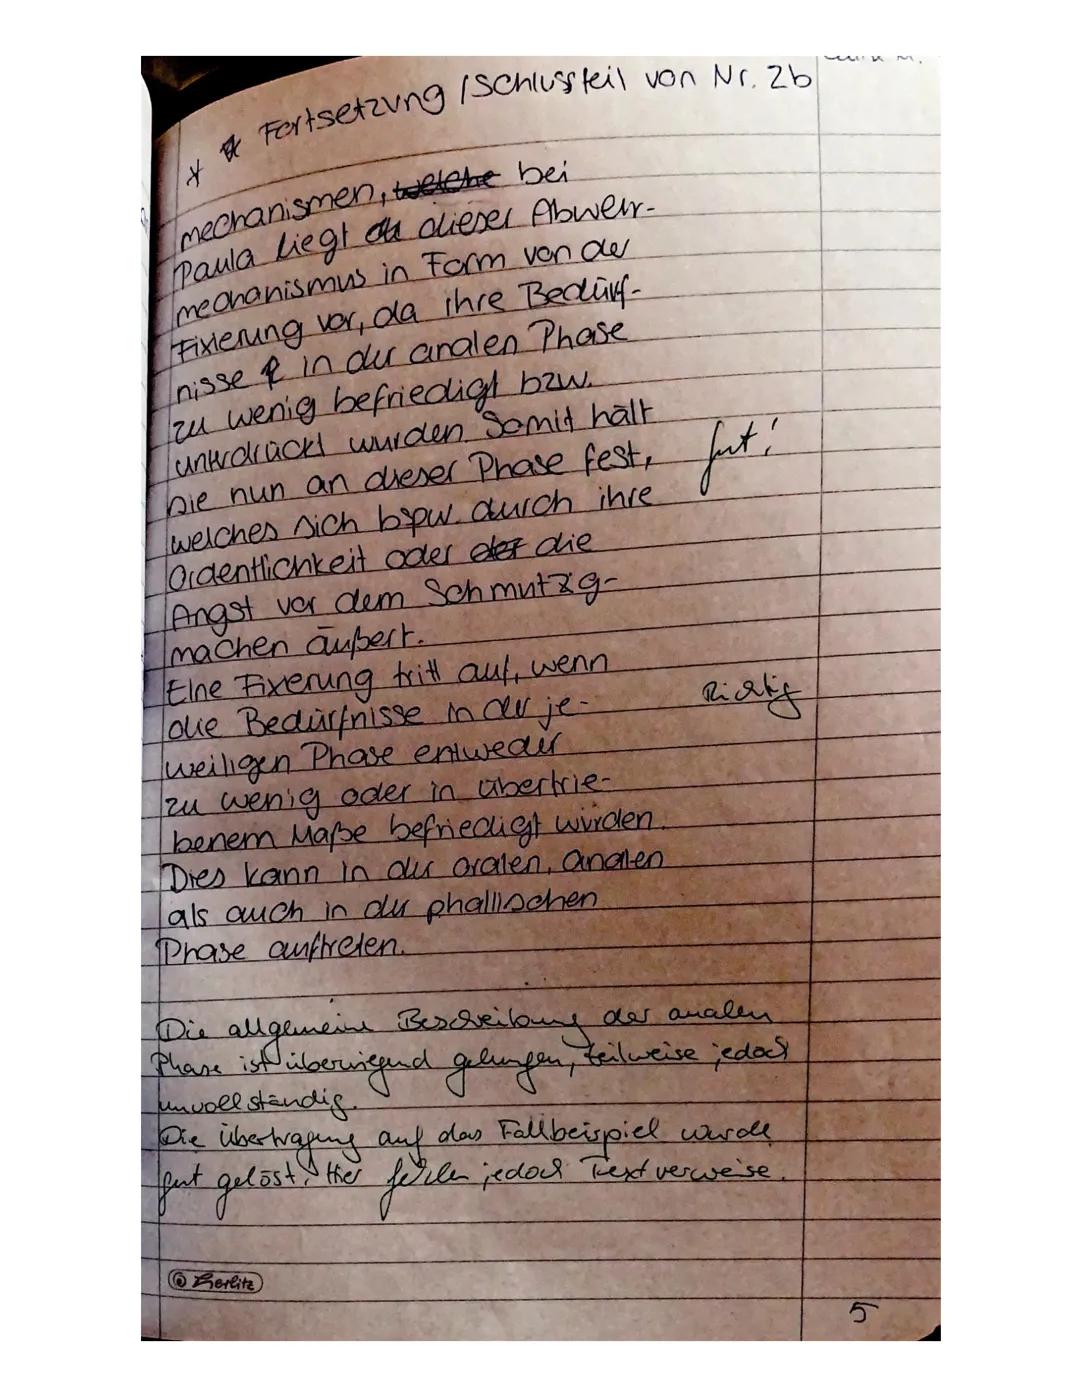 * Fortsetzung / Schlussteil von Nr. 2b
mechanismen, welche bei
Paula liegt dieser Abwehr-
mechanismus in Form von der
Fixierung vor, da ihre Bedürf-
nisse in der analen Phase
zu wenig befriedigt bzw.
unterdrückt wurden. Somit hält
sie nun an dieser Phase fest,
gut!
welches sich bspw. durch ihre
Ordentlichkeit oder die
Angst vor dem Schmutzig-
machen äußert.
Eine Fixerung tritt auf, wenn
die Bedürfnisse in der je-
Richtig
weiligen Phase entweder
zu wenig oder in übertrie-
benem Maße befriedigt würden.
Dies kann in der oralen, analen
als auch in der phallischen
Phase auftreten.
Die allgemeine Beschreibung der analen
Phase ist überwiegend gelungen, teilweise jedoch
unvollständig.
Die Übertragung auf das Fallbeispiel wurde
gut gelöst. Hier fehlen jedoch Textverweise.
Herlitz
5